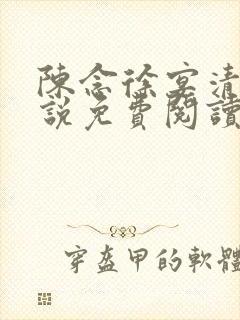 陳念徐宴清
說免費閱讀
穿盔甲的軟體